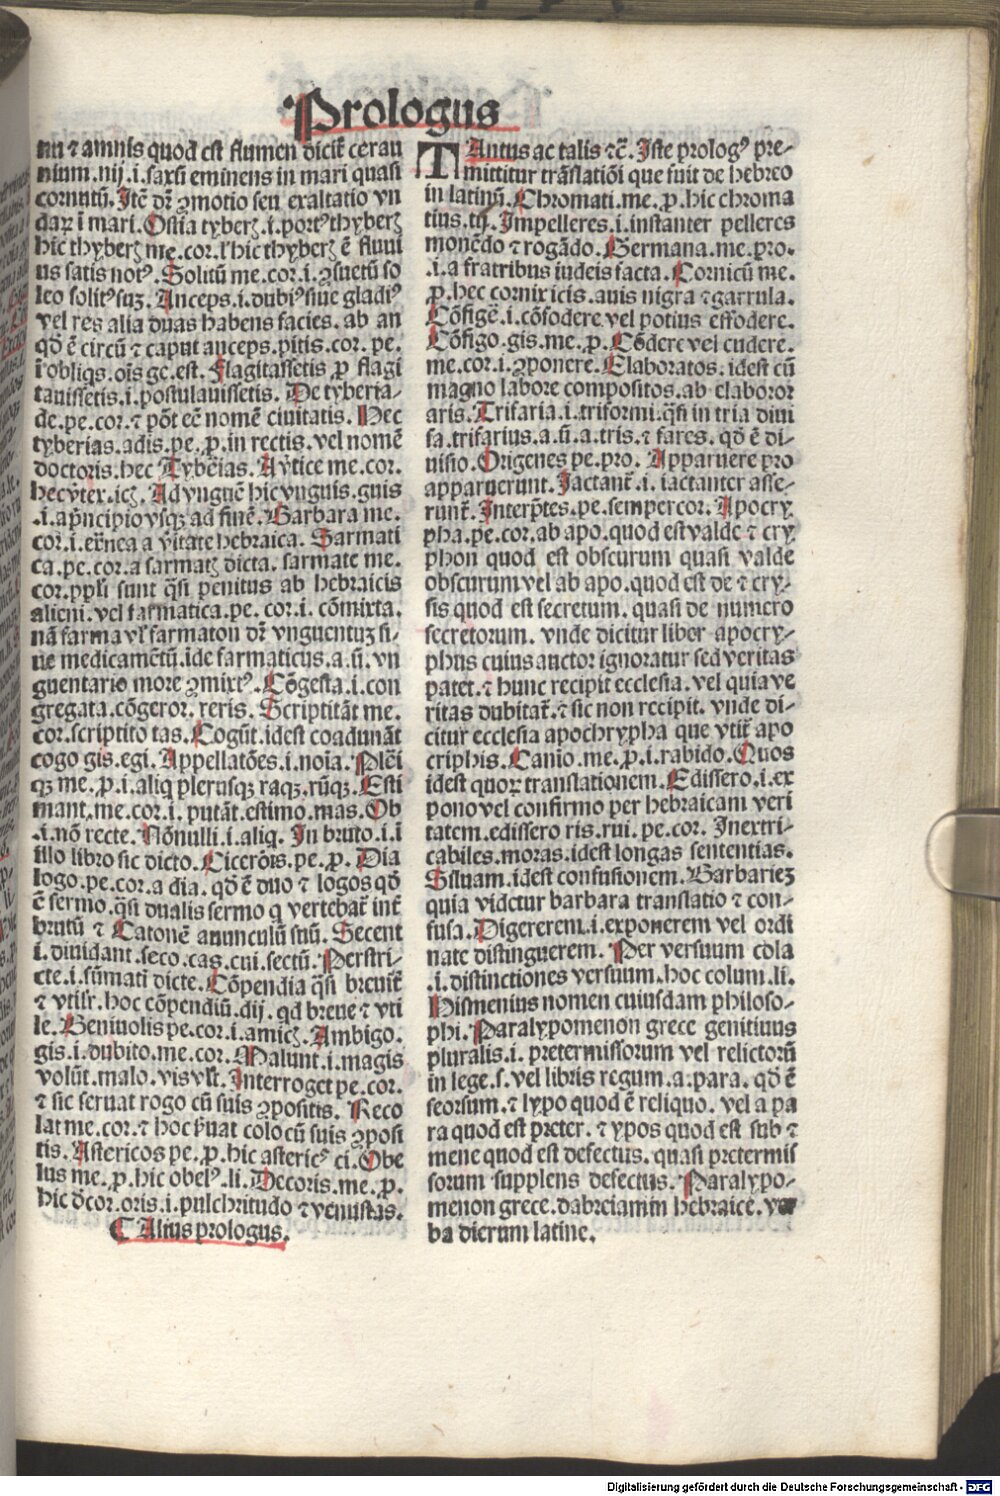 Prologus
nu ⁊ amnis quod est flumen dicit̄ cerau
nium.nij.i.saxū eminens in mari quasi
cornutū. Itē dr̄ ꝯmotio seu exaltatio vn
daꝝ ī mari. Ostia tyberꝭ.i.portꝰ thyberꝭ
hic thyberꝭ me.cor.l' hic thyberꝭ ē fluui
us satis notꝰ. Solitū me.cor.i.ꝯsuetū so
leo solitꝰ suꝫ. Anceps.i.dubiꝰ siue gladiꝰ
vel res alia duas habens facies. ab an
qd̄ ē circū ⁊ caput anceps.pitis.cor.pe.
ī obliqs.oīs ge.est. Flagitassetis ꝓ flagi
tauissetis.i.postulauissetis. De tyberia-
de.pe.cor.⁊ pōt eē nomē ciuitatis. Hec
tyberias.adis.pe.ꝓ.in rectis.vel nomē
doctoris.hec Tyberias. Aytice me.cor.
hec ytex.icꝭ. Ad vnguē hic vnguis.guis
.i.a pͥncipio vsqꝫ ad finē. Barbara me.
cor.i.ex̄nea a v̄itate hebraica. Sarmati
ca.pe.cor.a sarmatꝭ dicta. sarmate me.
cor.ppl̄i sunt qͣsi penitus ab hebraicis
alieni.vel farmatica.pe.cor.i.cōmixta.
nā farma vl̄ farmaton dr̄ vnguentuꝫ si-
ue medicamētū.ide farmaticus.a.ū.vn
guentario more ꝯmixtꝰ. Cōgesta.i.con
gregata.cōgeror.reris. Scriptitāt me.
cor.scriptito tas. Cogūt.idest coadunāt
cogo gis.egi. Appellatōes.i.noīa. Pleri
qꝫ me.ꝓ.i.aliq plerusqꝫ raqꝫ.rūqꝫ. Esti
mant.me.cor.i.putāt.estimo.mas. Ob
.i.nō recte. Nōnulli.i.aliq. In bruto.i.i
illo libro sic dicto. Cicerōis.pe.ꝓ. Dia
logo.pe.cor.a dia.qd̄ ē duo ⁊ logos qd̄
ē sermo.qͣsi dualis sermo q vertebat̄ int̄
brutū ⁊ Catonē auunculū suū. Secent
i.diuidant.seco.cas.cui.sectū. Perstri-
cte.i.sūmati dicte. Cōpendia qͣsi breuit̄
⁊ vtilr̄.hoc cōpendiū.dij.qd breue ⁊ vti
le. Beniuolis pe.cor.i.amicꝭ. Ambigo.
gis.i.dubito.me.cor. Malunt.i.magis
volūt.malo.vis vlt̄. Interroget pe.cor.
⁊ sic seruat rogo cū suis ꝯpositis. Reco
lat me.cor.⁊ hoc ẜuat colo cū suis ꝯposi
tis. Astericos pe.ꝓ.hic astericꝰ ci. Obe
lus me.ꝓ.hic obelꝰ.li. Decoris.me.ꝓ.
hic d̄cor.oris.i.pulchritudo ⁊ venustas.
⸿ Alius prologus.
TAntus ac talis ⁊c̄. Iste prologꝰ pre-
mittitur trāslatiōi que fuit de hebreo
in latinū. Chromati.me.ꝓ.hic chroma
tius.tij. Impelleres.i.instanter pelleres
monēdo ⁊ rogādo. Germana.me.pro.
.i.a fratribus iudeis facta. Cornicū me.
ꝓ.hec cornix icis.auis nigra ⁊ garrula.
Cōfigē.i.cōfodere vel potius effodere.
Cōfigo.gis.me.ꝓ. Cōdere vel cudere.
me.cor.i.ꝯponere. Elaboratos.idest cū
magno labore compositos.ab elaboror
aris. Trifaria.i.triformi.qͣsi in tria diui
sa.trifarius.a.ū.a.tris.⁊ fares.qd̄ ē di-
uisio. Origenes pe.pro. Apparuere pro
apparuerunt. Iactant̄.i.iactanter asse-
runt̄. Interp̄tes.pe.semper cor. Apocry
pha.pe.cor.ab apo.quod est valde ⁊ cry
phon quod est obscurum quasi valde
obscurum vel ab apo.quod est de ⁊ cry-
sis quod est secretum.quasi de numero
secretorum. vnde dicitur liber apocry-
phus cuius auctor ignoratur sed veritas
patet.⁊ hunc recipit ecclesia.vel quia ve
ritas dubitat̄.⁊ sic non recipit.vnde di-
citur ecclesia apochrypha que vtit̄ apo
criphis. Canio.me.ꝓ.i.rabido. Quos
idest quoꝝ translationem. Edissero.i.ex
pono vel confirmo per hebraicam veri
tatem.edissero ris.rui.pe.cor. Inextri-
cabiles.moras.idest longas sententias.
Siluam.idest confusionem. Barbarieꝫ
quia videtur barbara translatio ⁊ con-
fusa. Digererem.i.exponerem vel ordi
nate distinguerem. Per versuum cola
.i.distinctiones versuum.hoc colum.li.
Hismenius nomen cuiusdam philoso-
phi. Paralypomenon grece genitiuus
pluralis.i.pretermissorum vel relictorū
in lege.s.vel libris regum.a.para.qd̄ ē
seorsum.⁊ lypo quod ē reliquo.vel a pa
ra quod est preter.⁊ ypos quod est sub ⁊
mene quod est defectus.quasi pretermis
sorum supplens defectus. Paralypo-
menon grece.dabreiamin hebraice.ver
ba dierum latine.
Digitalisierung gefördert durch die Deutsche Forschungsgemeinschaft - DFG